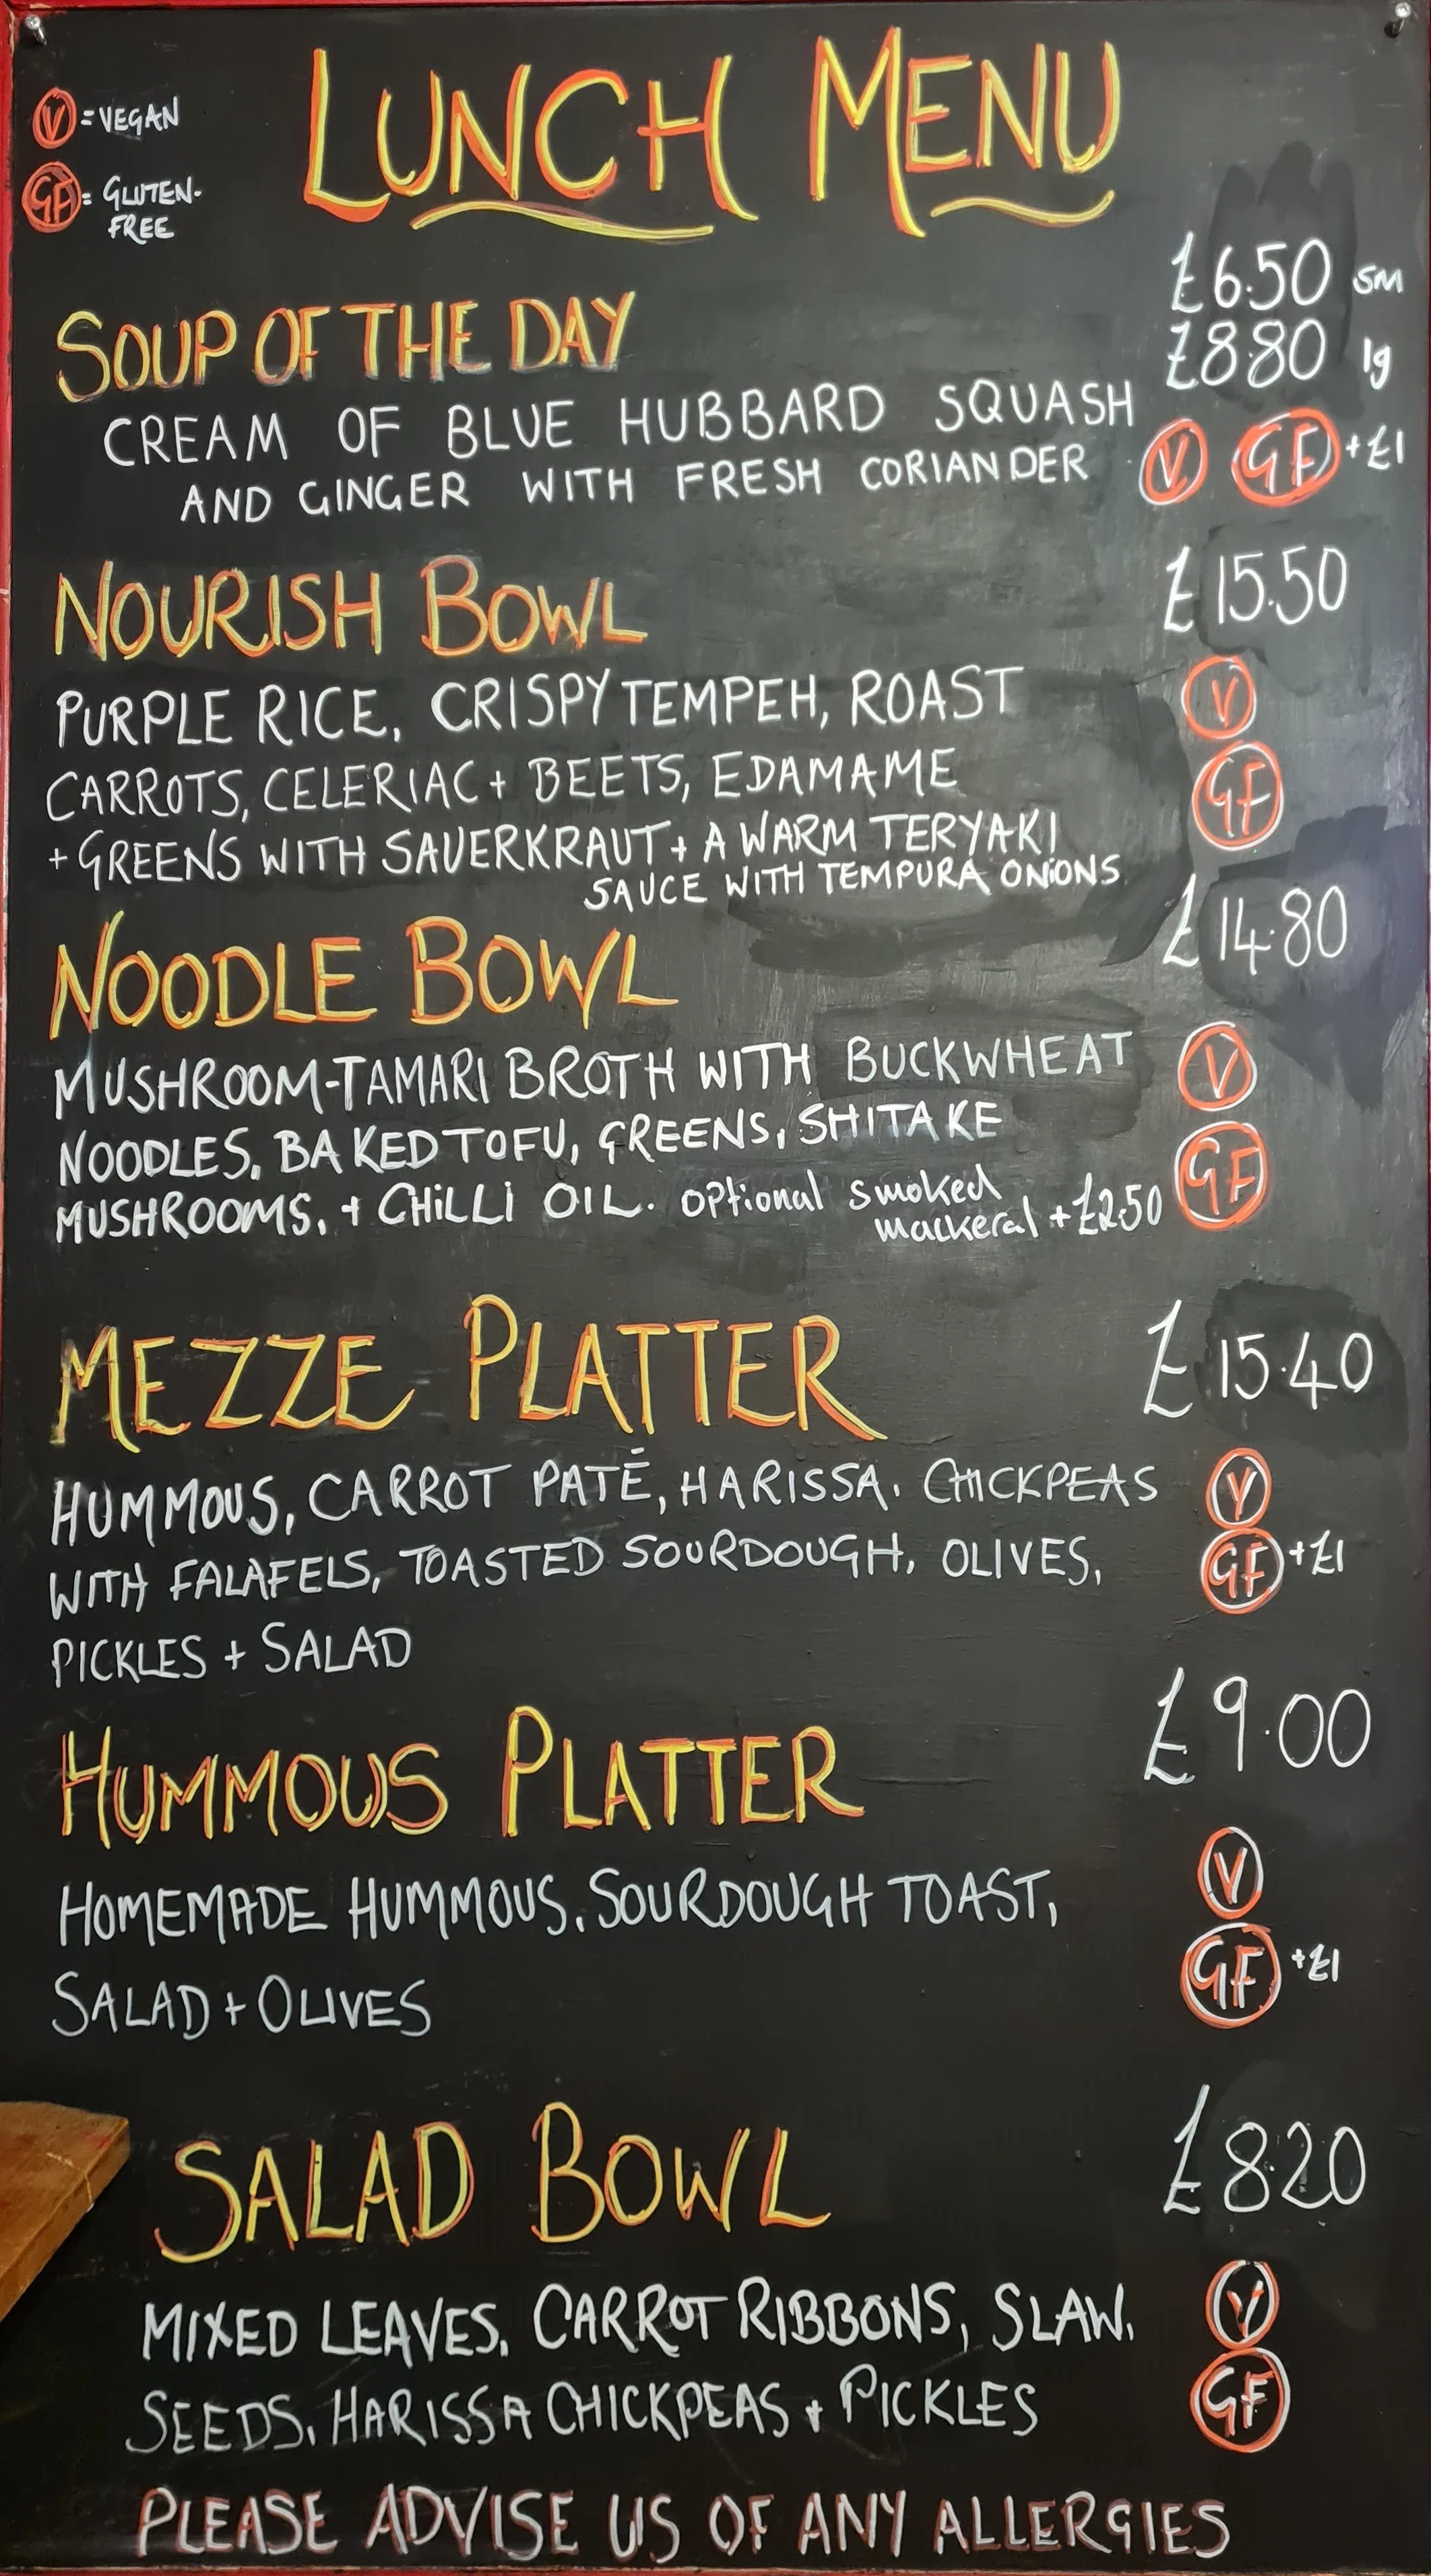 LUNCH MENU
V = VEGAN
GF = GLUTEN-
FREE
SOUP OF THE DAY
£6.50 sm
£8.80 lg
CREAM OF BLUE HUBBARD SQUASH
AND GINGER WITH FRESH CORIANDER
V GF +£1
NOURISH BOWL £15.50
PURPLE RICE, CRISPY TEMPEH, ROAST V
CARROTS, CELERIAC + BEETS, EDAMAME GF
+ GREENS WITH SAUERKRAUT + A WARM TERYAKI
SAUCE WITH TEMPURA ONIONS
NOODLE BOWL £14.80
MUSHROOM-TAMARI BROTH WITH BUCKWHEAT V
NOODLES, BAKED TOFU, GREENS, SHITAKE GF
MUSHROOMS, + CHILLI OIL. optional smoked
mackeral +£2.50
MEZZE PLATTER £15.40
HUMMOUS, CARROT PATÉ, HARISSA, CHICKPEAS V
WITH FALAFELS, TOASTED SOURDOUGH, OLIVES, GF +£1
PICKLES + SALAD
HUMMOUS PLATTER £9.00
HOMEMADE HUMMOUS, SOURDOUGH TOAST, V
SALAD + OLIVES GF +£1
SALAD BOWL £8.20
MIXED LEAVES, CARROT RIBBONS, SLAW, V
SEEDS, HARISSA CHICKPEAS + PICKLES GF
PLEASE ADVISE US OF ANY ALLERGIES